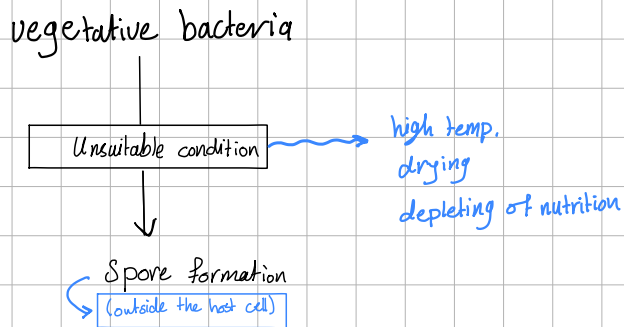 vegetative bacteria
Unsuitable condition
high temp.
drying
depleting of nutrition
Spore formation
(outside the host cell)